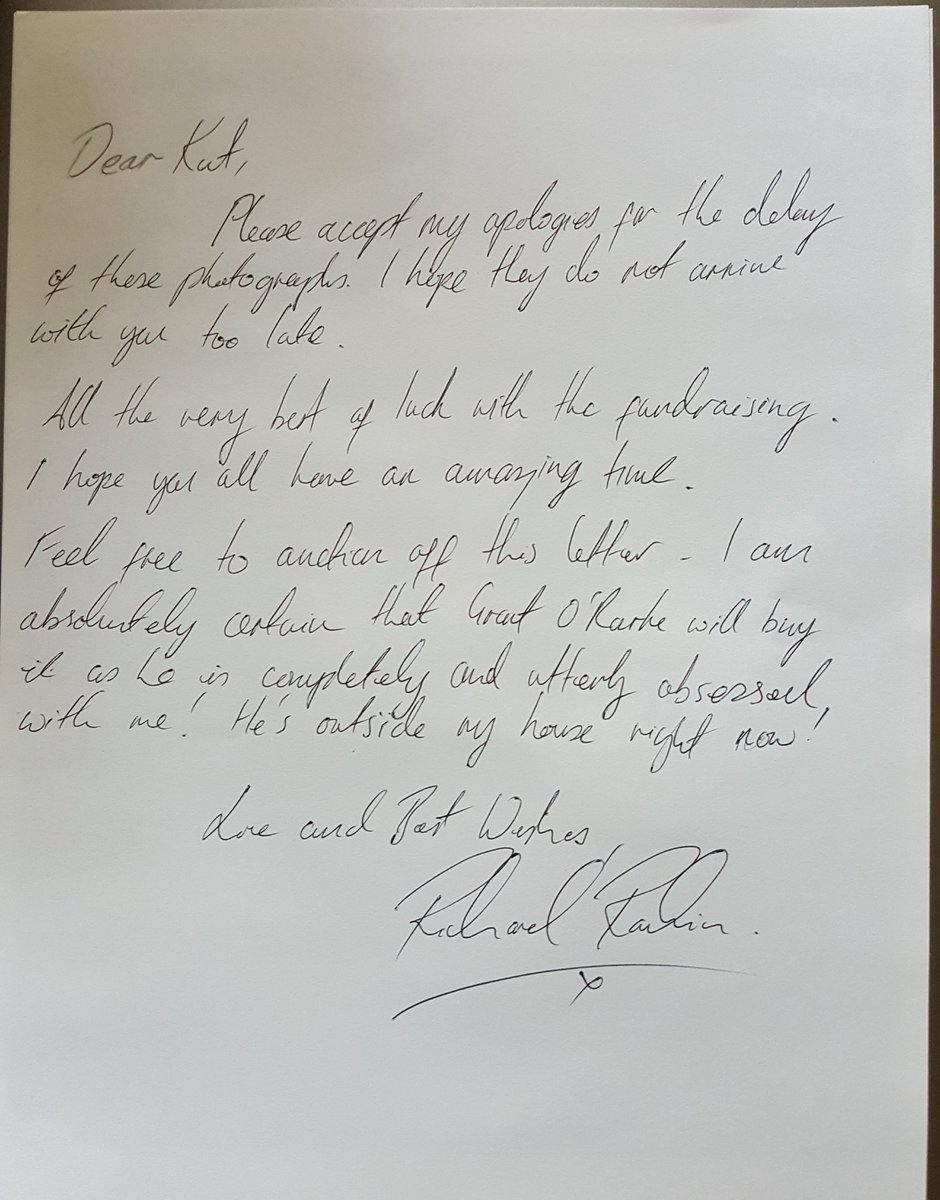 Dear Kat,
Please accept my apologies for the delay
of these photographs. I hope they do not arrive
with you too late.
All the very best of luck with the fundraising.
I hope you all have an amazing time.
Feel free to auction off this letter - I am
absolutely certain that Grant O'Rourke will buy
it as he is completely and utterly obsessed,
with me! He's outside my house right now!
Love and Best Wishes,
Richard Rankin.
x